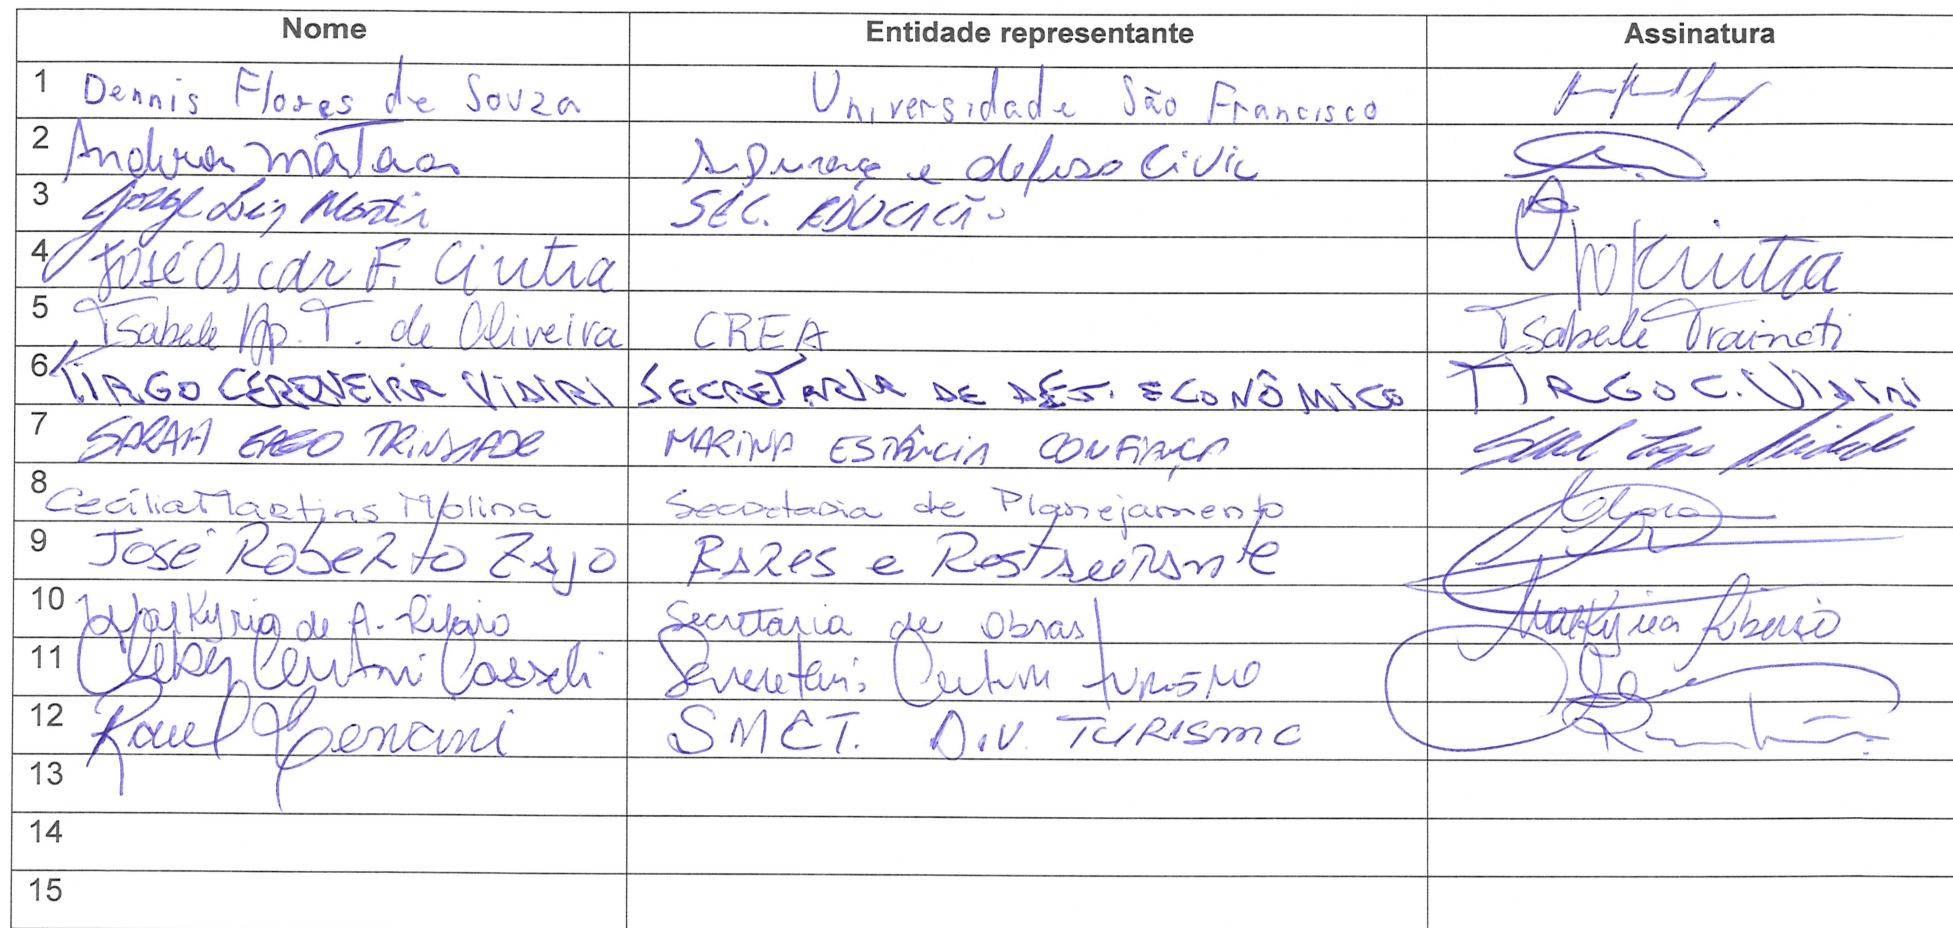 Nome Entidade representante Assinatura
1 Dennis Flores de Souza Universidade São Francisco
2 Andrea e defesa Civil
3 Jorge Luiz Martin SEC. EDUCAÇÃO
4 José Oscar F. Cintra Cintra
5 Isabele Ap. T. de Oliveira CREA Isabele Trainoti
6 TIAGO CERQUEIRA VIDIRI SECRETARIA DE DES. ECONÔMICO TIAGO C. VIDIRI
7 SARAH TRINDADE MARINA ESTÂNCIA CONFIANÇA
8 Cecília Martins Molina Secretaria de Planejamento
9 José Roberto Zajo BARES e Restaurante
10 Walkyria de A. Ribeiro Secretaria de Obras Walkyria Ribeiro
11 Secretaria Cultura turismo
12 Raul Cencini SMCT. DIV. TURISMO
13
14
15